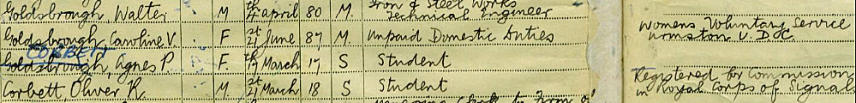 Goldsbrough Walter . M 4th April 80 M. Iron & Steel Works Technical Engineer
Goldsbrough Caroline V . F. 21st June 87 M Unpaid Domestic Duties Womens Voluntary Service Urmston U.D.C
CORBETT
Goldsbrough, Agnes P. F. March 17 S Student
Corbett, Oliver R. M. 21st March 18 S Student Registered for Commission in Royal Corps of Signals